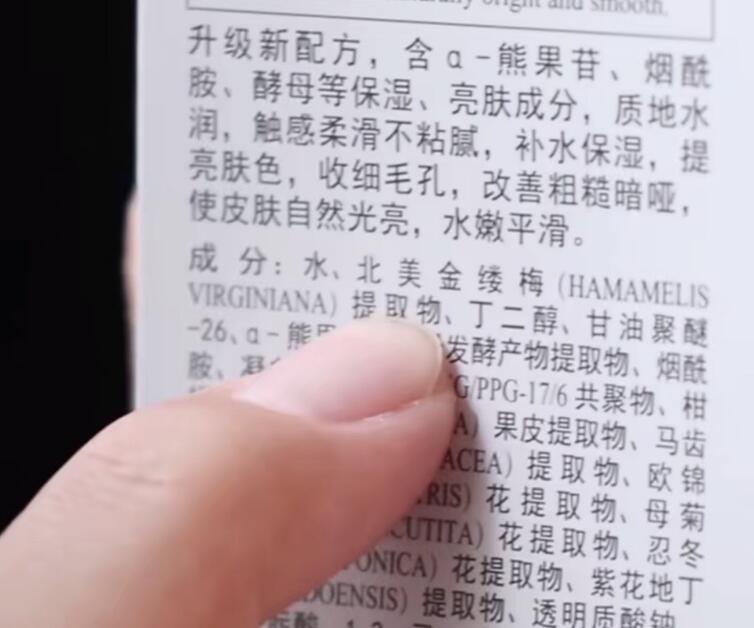 bright and smooth.
升级新配方，含α-熊果苷、烟酰
胺、酵母等保湿、亮肤成分，质地水
润，触感柔滑不粘腻，补水保湿，提
亮肤色，收细毛孔，改善粗糙暗哑，
使皮肤自然光亮，水嫩平滑。
成分：水、北美金缕梅（HAMAMELIS
VIRGINIANA）提取物、丁二醇、甘油聚醚
-26、α-熊 发酵产物提取物、烟酰
胺、凝 G/PPG-17/6 共聚物、柑
A）果皮提取物、马齿
ACEA）提取物、欧锦
TRIS）花提取物、母菊
CUTITA）花提取物、忍冬
ONICA）花提取物、紫花地丁
DOENSIS）提取物、透明质酸钠、